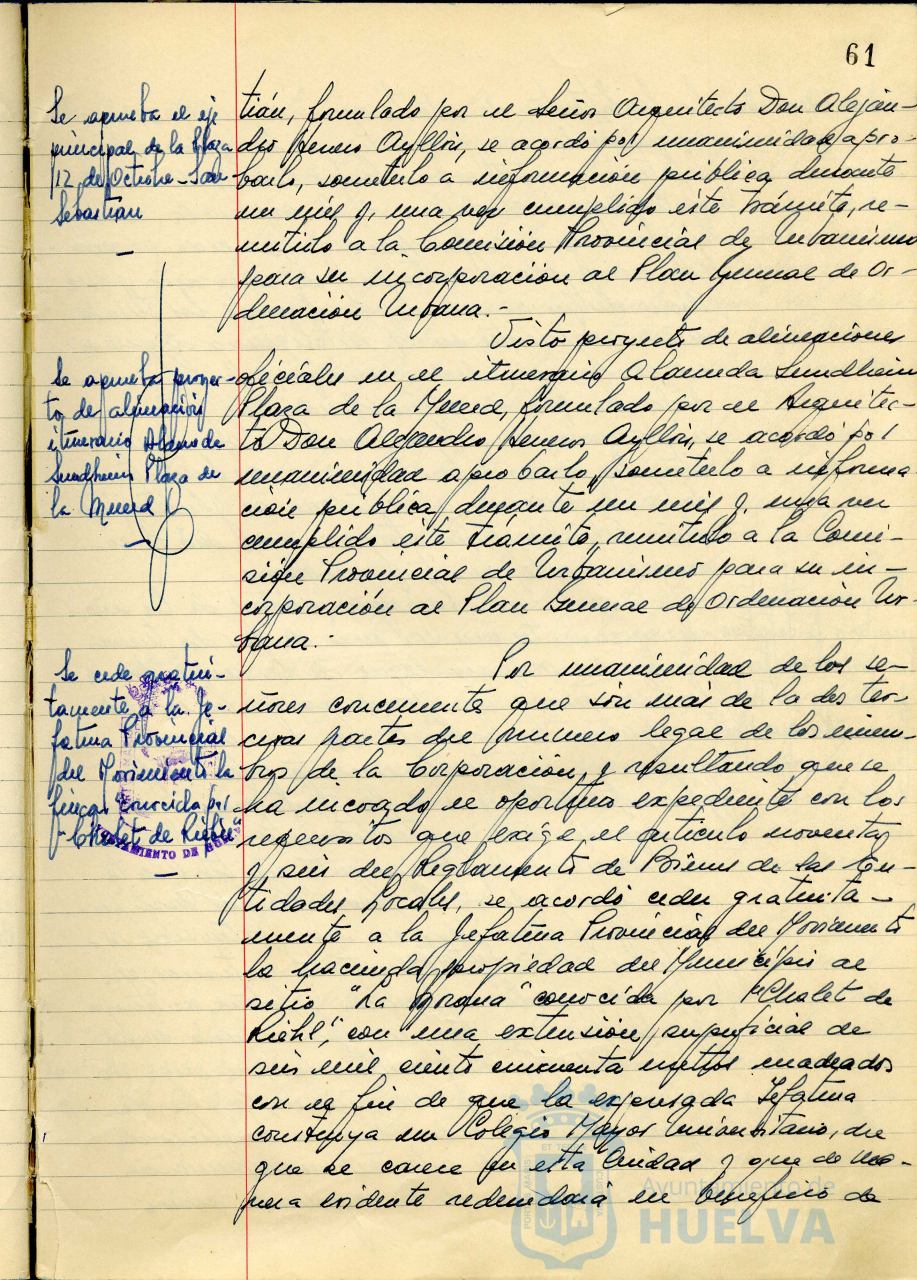 61
Se aprueba el eje
principal de la Plaza
12 de Octubre - San
Sebastián
tián, formulado por el Señor Arquitecto Don Aleján-
dro Herrero Ayllón, se acordó por unanimidad apro-
barlo, someterlo a información pública durante
un mes y, una vez cumplido este trámite, re-
mitirlo a la Comisión Provincial de Urbanismo
para su incorporación al Plan General de Or-
denación Urbana.-
Se aprueba proyec-
to de alineación
itinerario Alameda
Sundheim Plaza de
la Merced
Visto proyecto de alineaciones
oficiales en el itinerario Alameda Sundheim
Plaza de la Merced, formulado por el Arquitec-
to Don Alejandro Herrero Ayllón, se acordó por
unanimidad aprobarlo, someterlo a informa-
ción pública durante un mes y, una vez
cumplido este trámite, remitirlo a la Comi-
sión Provincial de Urbanismo para su in-
corporación al Plan General de Ordenación Ur-
bana.-
Se cede gratui-
tamente a la Je-
fatura Provincial
del Movimiento la
finca conocida por
"Chalet de Riehl"
AYUNTAMIENTO DE HUELVA
Por unanimidad de los se-
ñores concurrentes que son más de la dos ter-
ceras partes del número legal de los miem-
bros de la Corporación, y resultando que se
ha incoado el oportuno expediente con los
requisitos que exige el artículo noventa
y seis del Reglamento de Bienes de las En-
tidades Locales, se acordó ceder gratuita-
mente a la Jefatura Provincial del Movimiento
la hacienda propiedad del Municipio al
sitio "La Morana" conocida por "Chalet de
Riehl", con una extensión superficial de
seis mil ciento cincuenta metros cuadrados
con el fin de que la expresada Jefatura
construya un Colegio Mayor Universitario, del
que se carece en esta Ciudad y que de ma-
nera evidente redundará en beneficio de
Ayuntamiento de
HUELVA